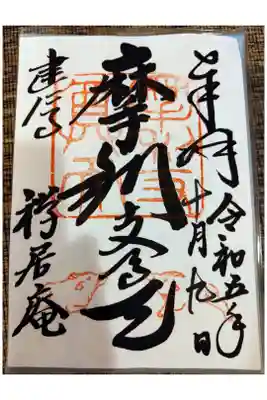 奉拝
令和五年
十月九日
摩利支尊天
建仁寺
禅居庵